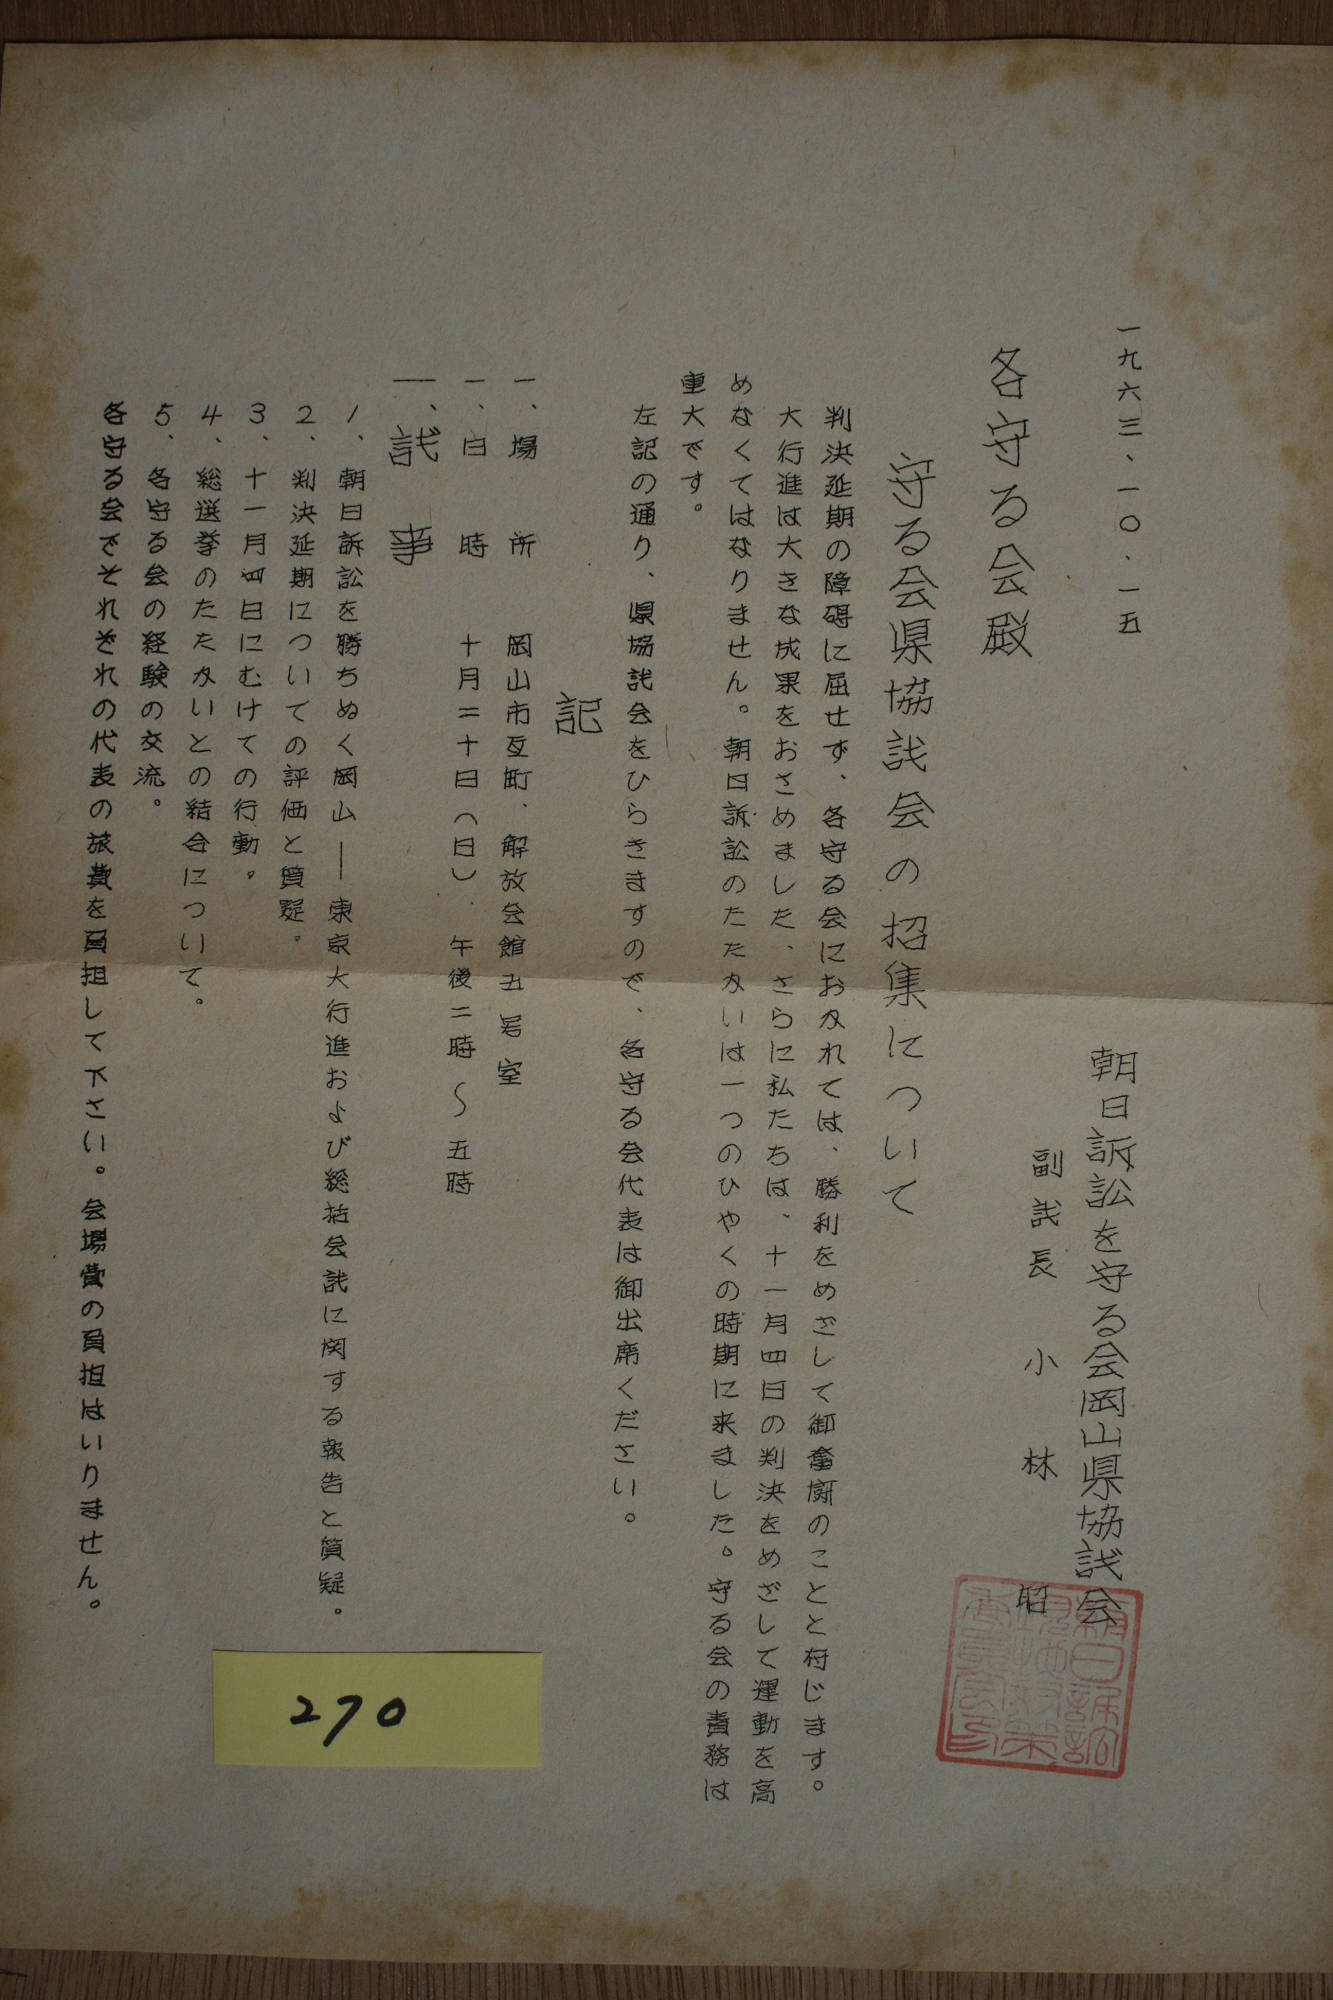 一九六三・一〇・一五
朝日訴訟を守る会岡山県協議会
副議長 小林 昭
各守る会殿
守る会県協議会の招集について
判決延期の障碍に屈せず、各守る会におかれては、勝利をめざして御奮闘のことと存じます。
大行進は大きな成果をおさめました、さらに私たちは、十一月四日の判決をめざして運動を高
めなくてはなりません。朝日訴訟のたたかいは一つのひやくの時期に来ました。守る会の責務は
重大です。
左記の通り、県協議会をひらきますので、各守る会代表は御出席ください。
記
一、場 所 岡山市互町、解放会館五号室
一、日 時 十月二十日(日)、午後二時〜五時
一、議 事
1、朝日訴訟を勝ちぬく岡山―東京大行進および総括会議に関する報告と質疑。
2、判決延期についての評価と質疑。
3、十一月四日にむけての行動。
4、総選挙のたたかいとの結合について。
5、各守る会の経験の交流。
各守る会でそれぞれの代表の旅費を負担して下さい。会場費の負担はいりません。
270